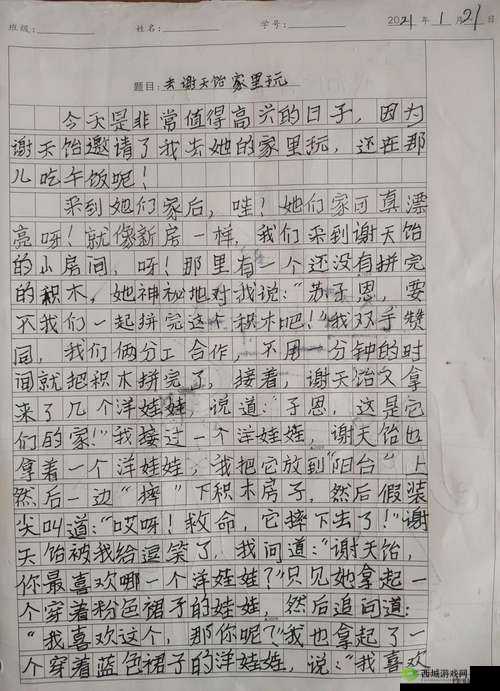 班级: 姓名: 学号: 2021年1月21日
题目: 去谢天饴家里玩
今天是非常值得高兴的日子，因为
谢天饴邀请了我去她的家里玩，还在那
儿吃午饭呢！
来到她们家后，哇！她们家可真漂
亮呀！就像新房一样，我们来到谢天饴
的小房间，呀！那里有一个还没有拼完
的积木，她神秘地对我说：“苏子恩，要
不我们一起拼完这个积木吧！”我双手赞
同，我们俩分工合作，不用一分钟的时
间就把积木拼完了，接着，谢天饴又拿
来了几个洋娃娃，说道：“子恩，这是它
们的家！”我接过一个洋娃娃，谢天饴也
拿着一个洋娃娃，我把它放到“阳台”上
然后一边“摔”下积木房子，然后假装
尖叫道：“哎呀！救命，它摔下去了！”谢
天饴被我给逗笑了，我问道：“谢天饴，
你最喜欢哪一个洋娃娃？”只见她拿起一
个穿着粉色裙子的娃娃，然后追问道：
“我喜欢这个，那你呢？”我也拿起了一
个穿着蓝色裙子的洋娃娃，说：“我喜欢
西城游戏网